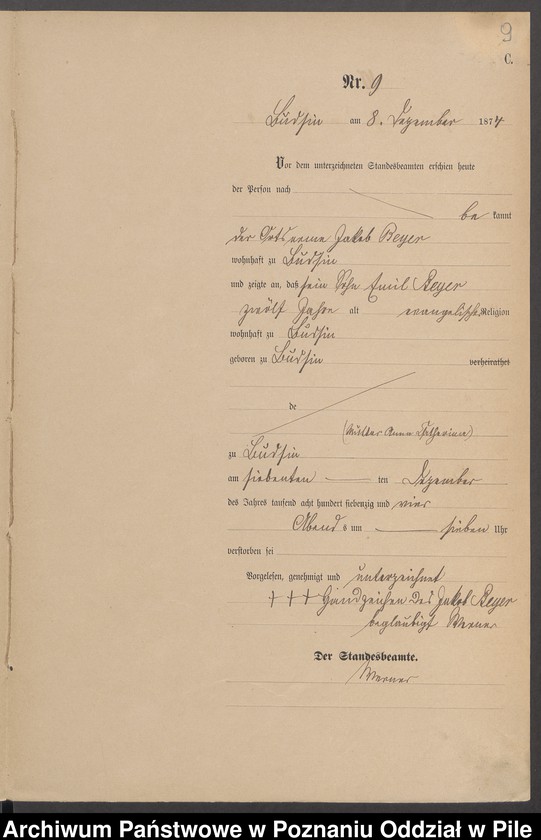 9
C.
Nr. 9
Budsin am 8. Dezember 1874
Vor dem unterzeichneten Standesbeamten erschien heute
der Person nach
be kannt
der Ortsarme Jakob Beyer
wohnhaft zu Budsin
und zeigte an, daß sein Sohn Emil Beyer
zwölf Jahre alt evangelischer Religion
wohnhaft zu Budsin
geboren zu Budsin verheirathet
de
(Mutter Anna Catharina)
zu Budsin
am siebenten ten Dezember
des Jahres tausend acht hundert siebenzig und vier
Abends um sieben Uhr
verstorben sei
Vorgelesen, genehmigt und unterzeichnet
+ + + Handzeichen des Jakob Beyer
beglaubigt Werner
Der Standesbeamte.
Werner
Archiwum Państwowe w Poznaniu Oddział w Pile